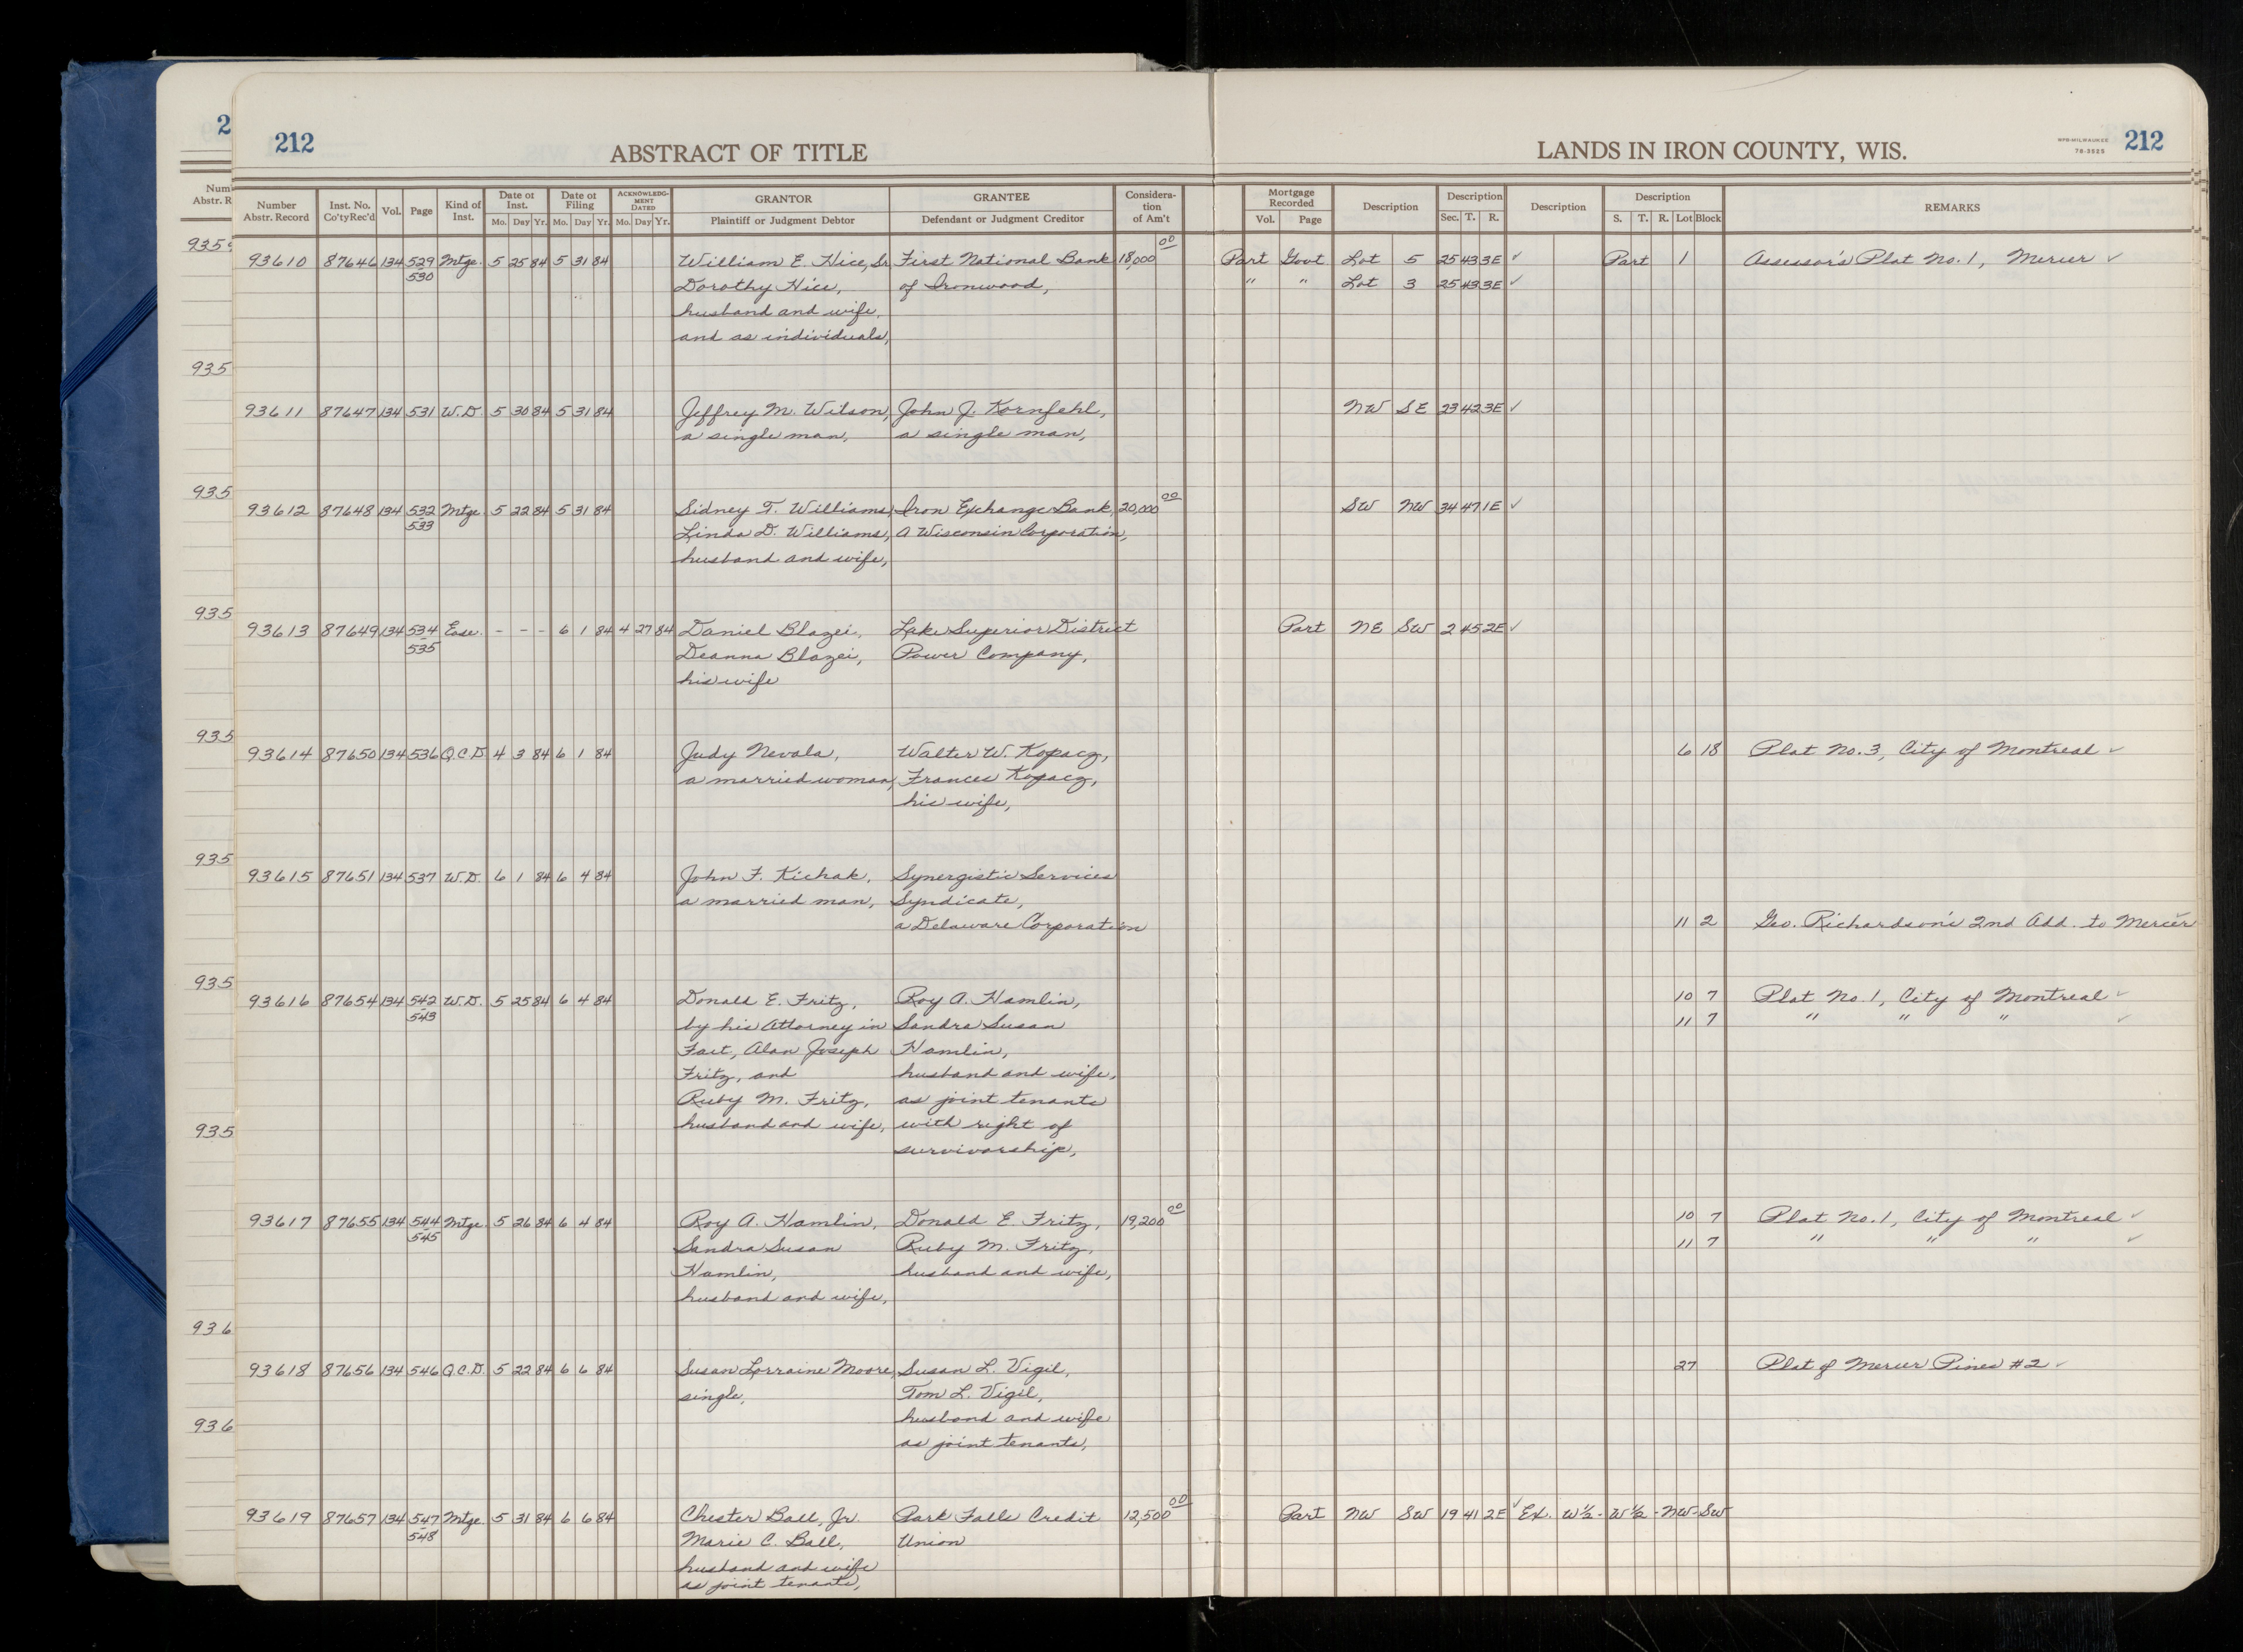 2
212
ABSTRACT OF TITLE
LANDS IN IRON COUNTY, WIS.
NPB-MILWAUKEE
78-3525
212
Number Abstr. Record Inst. No. Co'ty Rec'd Vol. Page Kind of Inst. Date of Inst. Mo. Day Yr. Date of Filing Mo. Day Yr. ACKNOWLEDGMENT DATED Mo. Day Yr. GRANTOR Plaintiff or Judgment Debtor GRANTEE Defendant or Judgment Creditor Consideration of Am't Mortgage Recorded Vol. Page Description Description Sec. T. R. Description Description S. T. R. Lot Block REMARKS
93610 87646 134 529 Mtge. 5 25 84 5 31 84 William E. Hice, Sr. First National Bank 18,000 00 Part Govt Lot 5 25 43 3E ✓ Part 1 Assessor's Plat No. 1, Mercer ✓
530 Dorothy Hice, of Ironwood, " " Lot 3 25 43 3E ✓
husband and wife,
and as individuals,
93611 87647 134 531 W.D. 5 30 84 5 31 84 Jeffrey M. Wilson, John J. Kornfehl, NW SE 23 42 3E ✓
a single man, a single man,
93612 87648 134 532 Mtge. 5 22 84 5 31 84 Sidney T. Williams, Iron Exchange Bank, 20,000 00 SW NW 34 47 1E ✓
533 Linda D. Williams, A Wisconsin Corporation,
husband and wife,
93613 87649 134 534 Ease. - - - 6 1 84 4 27 84 Daniel Blazei, Lake Superior District Part NE SW 2 45 2E ✓
535 Deanna Blazei, Power Company,
his wife
93614 87650 134 536 Q.C.D. 4 3 84 6 1 84 Judy Nevala, Walter W. Kopacz, 6 18 Plat No. 3, City of Montreal ✓
a married woman, Frances Kopacz,
his wife,
93615 87651 134 537 W.D. 6 1 84 6 4 84 John F. Kichak, Synergistic Services
a married man, Syndicate,
a Delaware Corporation 11 2 Geo. Richardson's 2nd Add. to Mercer ✓
93616 87654 134 542 W.D. 5 25 84 6 4 84 Donald E. Fritz, Roy A. Hamlin, 10 7 Plat No. 1, City of Montreal ✓
543 by his Attorney in Sandra Susan 11 7 " " " ✓
Fact, Alan Joseph Hamlin,
Fritz, and husband and wife,
Ruby M. Fritz, as joint tenants
husband and wife, with right of
survivorship,
93617 87655 134 544 Mtge. 5 26 84 6 4 84 Roy A. Hamlin, Donald E. Fritz, 19,200 00 10 7 Plat No. 1, City of Montreal ✓
545 Sandra Susan Ruby M. Fritz, 11 7 " " " ✓
Hamlin, husband and wife,
husband and wife,
93618 87656 134 546 Q.C.D. 5 22 84 6 6 84 Susan Lorraine Moore, Susan L. Vigil, 27 Plat of Mercer Pines #2 ✓
single, Tom L. Vigil,
husband and wife
as joint tenants,
93619 87657 134 547 Mtge. 5 31 84 6 6 84 Chester Ball, Jr. Park Falls Credit 12,500 00 Part NW SW 19 41 2E ✓ Ex. W½ - W½ - NW - SW
548 Marie C. Ball, Union
husband and wife
as joint tenants,